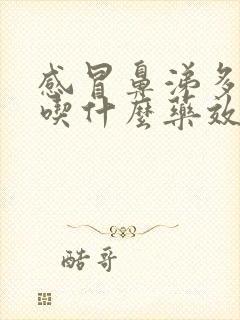 感冒鼻涕多
喫什麼藥效
酷哥